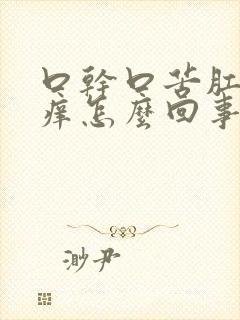 口幹口苦肛
癢怎麼回事
渺尹